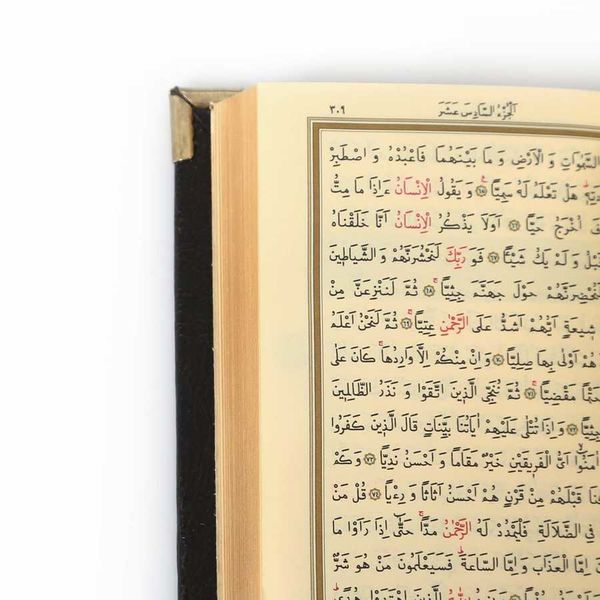 ٣٠٩ اَلْجُزْءُ السَّادِسَ عَشَرَ
السَّمٰوَاتِ وَ الْاَرْضِ وَ مَا بَيْنَهُمَا فَاعْبُدْهُ وَ اصْطَبِرْ
هَلْ تَعْلَمُ لَهُ سَمِيًّا ﴿٦٥﴾ وَ يَقُولُ الْاِنْسَانُ ءَاِذَا مَا مِتُّ
اُخْرَجُ حَيًّا ﴿٦٦﴾ اَوَلَا يَذْكُرُ الْاِنْسَانُ اَنَّا خَلَقْنَاهُ
وَ لَمْ يَكُ شَيْئًا ﴿٦٧﴾ فَوَ رَبِّكَ لَنَحْشُرَنَّهُمْ وَ الشَّيَاطٖينَ
لَنُحْضِرَنَّهُمْ حَوْلَ جَهَنَّمَ جِثِيًّا ﴿٦٨﴾ ثُمَّ لَنَنْزِعَنَّ مِنْ
شٖيعَةٍ اَيُّهُمْ اَشَدُّ عَلَى الرَّحْمٰنِ عِتِيًّا ﴿٦٩﴾ ثُمَّ لَنَحْنُ اَعْلَمُ
هُمْ اَوْلٰى بِهَا صِلِيًّا ﴿٧٠﴾ وَ اِنْ مِنْكُمْ اِلَّا وَارِدُهَا كَانَ عَلٰى
حَتْمًا مَقْضِيًّا ﴿٧١﴾ ثُمَّ نُنَجِّى الَّذٖينَ اتَّقَوْا وَ نَذَرُ الظَّالِمٖينَ
جِثِيًّا ﴿٧٢﴾ وَ اِذَا تُتْلٰى عَلَيْهِمْ اٰيَاتُنَا بَيِّنَاتٍ قَالَ الَّذٖينَ كَفَرُوا
اٰمَنُوا اَىُّ الْفَرٖيقَيْنِ خَيْرٌ مَقَامًا وَ اَحْسَنُ نَدِيًّا ﴿٧٣﴾ وَ كَمْ
قَبْلَهُمْ مِنْ قَرْنٍ هُمْ اَحْسَنُ اَثَاثًا وَ رِءْيًا ﴿٧٤﴾ قُلْ مَنْ
فِى الضَّلَالَةِ فَلْيَمْدُدْ لَهُ الرَّحْمٰنُ مَدًّا حَتّٰى اِذَا رَاَوْا مَا
اِمَّا الْعَذَابَ وَ اِمَّا السَّاعَةَ فَسَيَعْلَمُونَ مَنْ هُوَ شَرٌّ